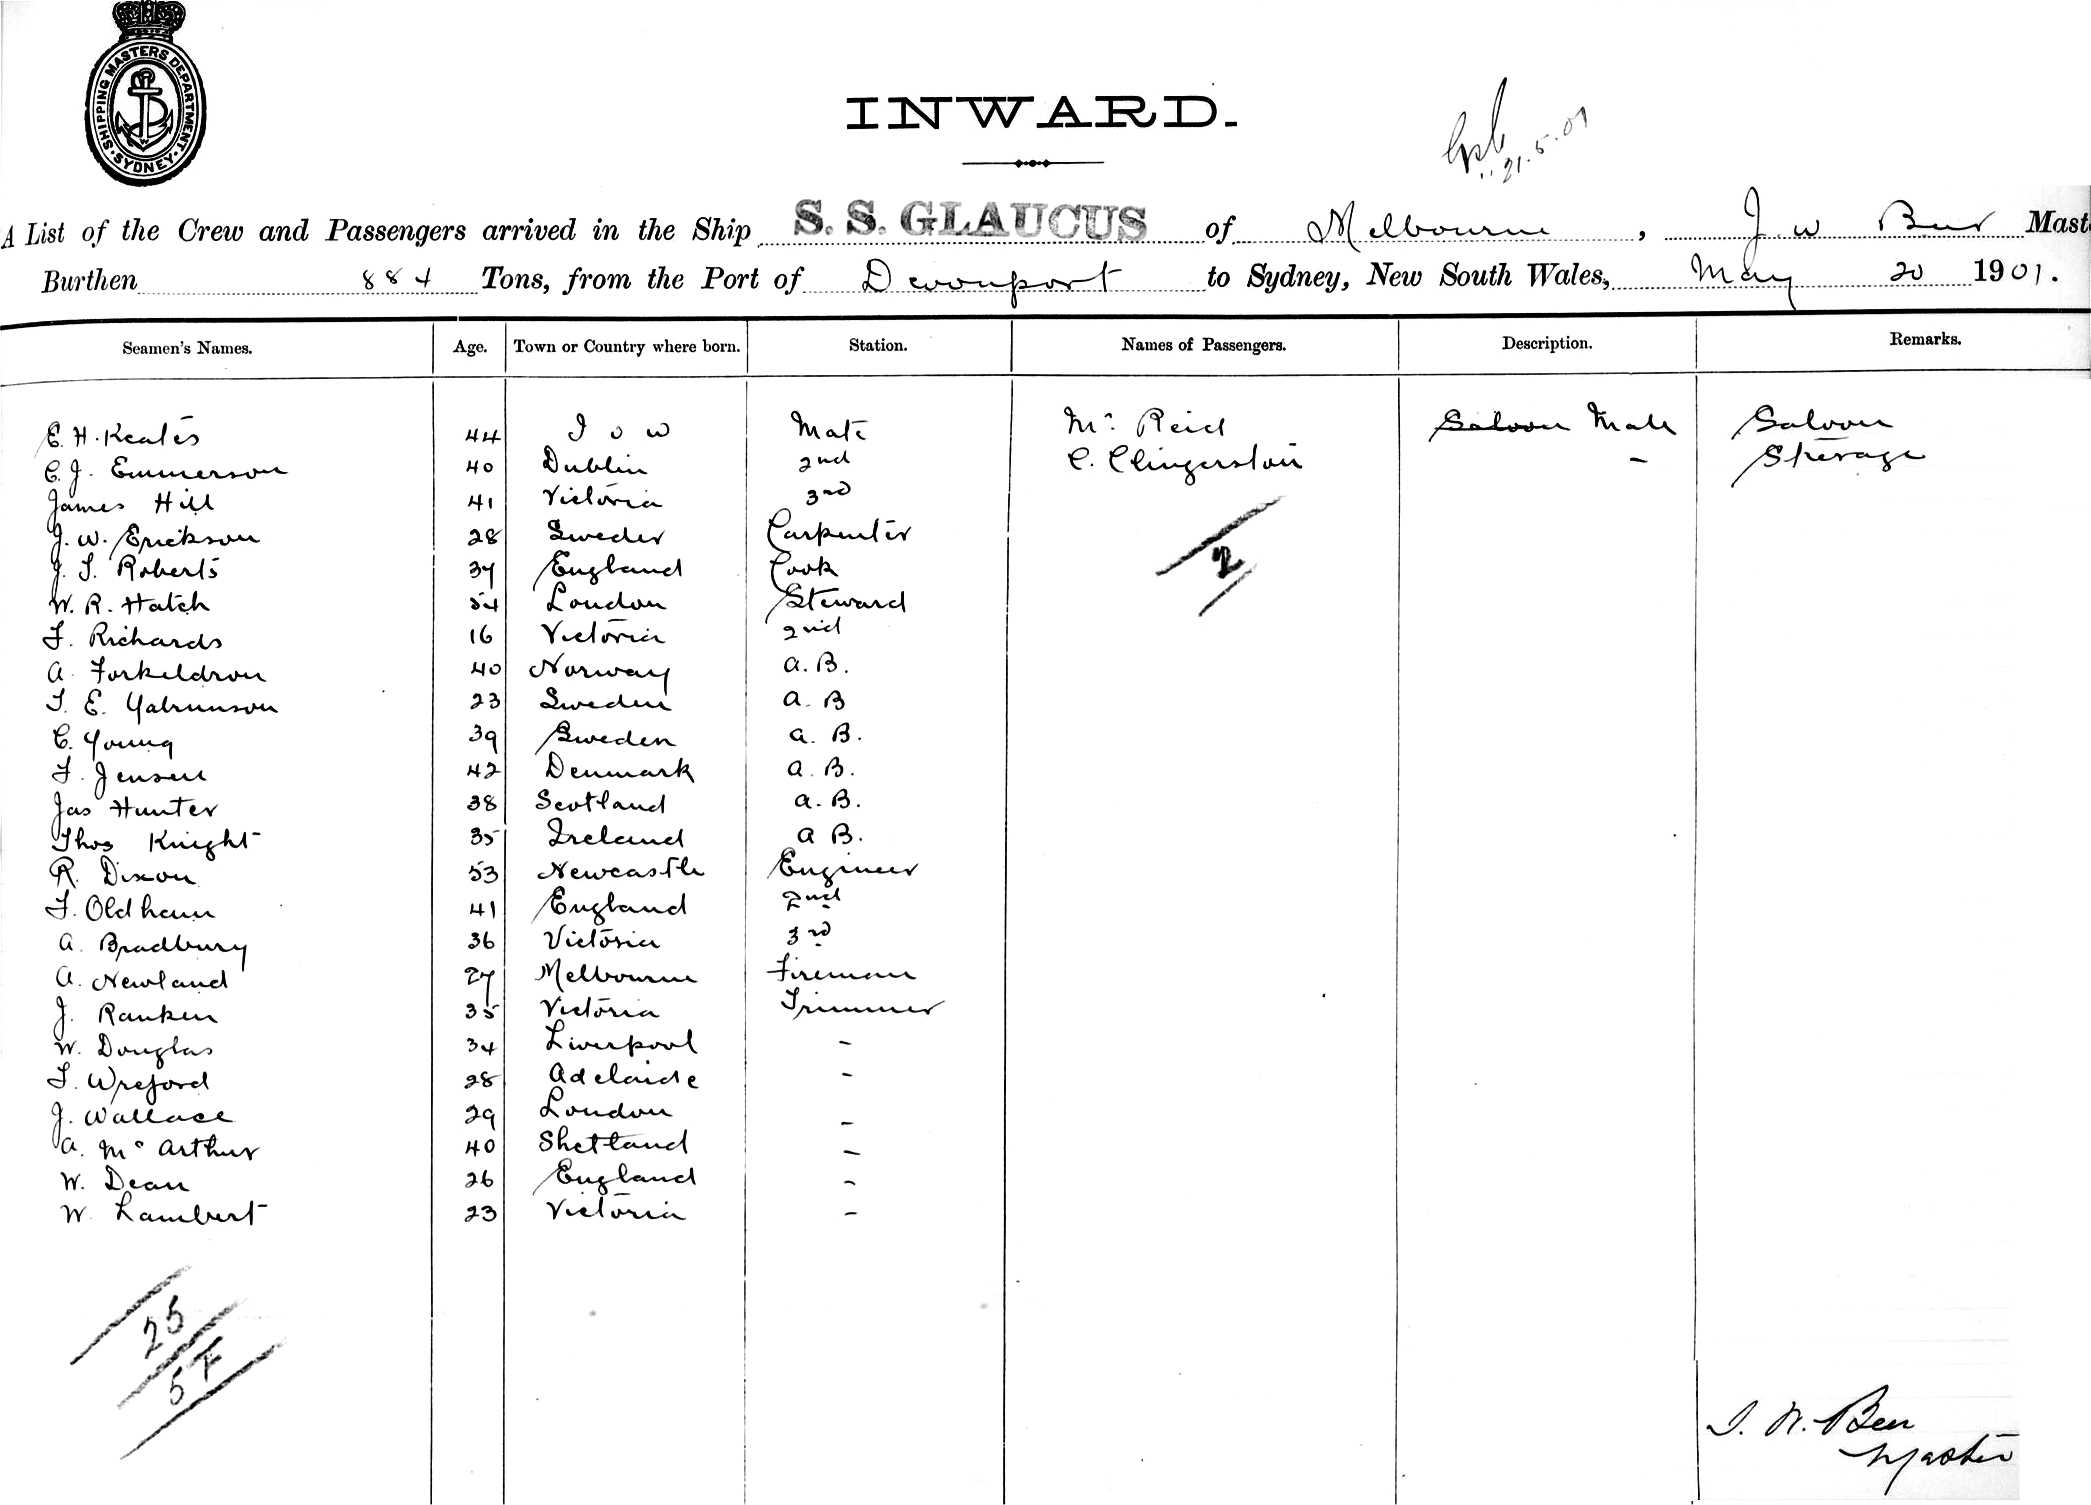 SHIPPING MASTERS DEPARTMENT. SYDNEY
INWARD.
21.5.01
A List of the Crew and Passengers arrived in the Ship S. S. GLAUCUS of Melbourne, J W Beer Mast
Burthen 884 Tons, from the Port of Devonport to Sydney, New South Wales, May 20 1901.
Seamen's Names. Age. Town or Country where born. Station. Names of Passengers. Description. Remarks.
E. H. Keates 44 I o W Mate Mr Reid Saloon Male Saloon
C. J. Emmerson 40 Dublin 2nd C. Clingerstoin - Steerage
James Hill 41 Victoria 3rd
J. W. Erickson 28 Sweden Carpenter
J. T. Roberts 37 England Cook
W. R. Hatch 54 London Steward
F. Richards 16 Victoria 2nd
A. Forkeldron 40 Norway A. B.
T. E. Yabrunson 23 Sweden A. B
C. Young 39 Sweden A. B.
F. Jensen 42 Denmark A. B.
Jas Hunter 38 Scotland A. B.
Thos Knight 35 Ireland A B.
R. Dixon 53 Newcastle Engineer
F. Oldham 41 England 2nd
A. Bradbury 36 Victoria 3rd
A. Newland 27 Melbourne Fireman
J. Ranken 35 Victoria Trimmer
W. Douglas 34 Liverpool -
T. Wreford 28 Adelaide -
J. Wallace 29 London -
A. Mc Arthur 40 Shetland -
W. Dean 26 England -
W. Lambert 23 Victoria -
2
25
5 F
J. W. Beer
Master